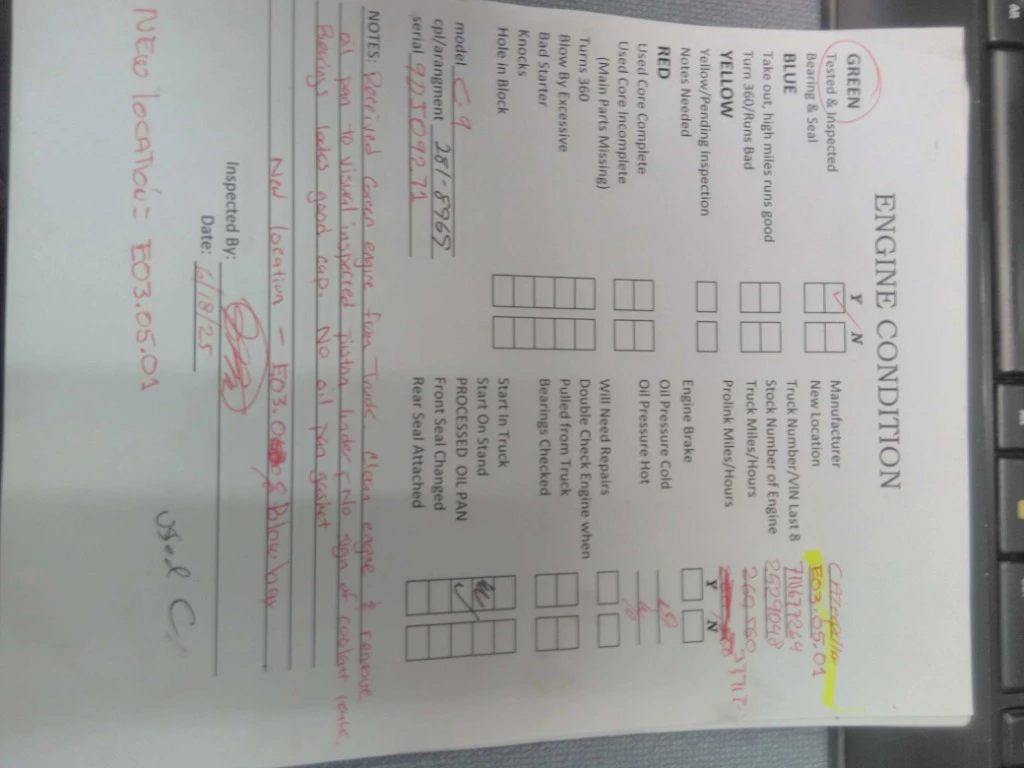 ENGINE CONDITION
Y N
GREEN
Tested & Inspected
Bearing & Seal
BLUE
Take out, high miles runs good
Turn 360/Runs Bad
YELLOW
Yellow/Pending Inspection
Notes Needed
RED
Used Core Complete
Used Core Incomplete
(Main Parts Missing)
Turns 360
Blow By Excessive
Bad Starter
Knocks
Hole in Block
Manufacturer
New Location E03.05.01
Truck Number/VIN Last 8
Stock Number of Engine
Truck Miles/Hours
Prolink Miles/Hours
Y N
Engine Brake
Oil Pressure Cold
Oil Pressure Hot
Will Need Repairs
Double Check Engine when
Pulled from Truck
Bearings Checked
Start In Truck
Start On Stand
PROCESSED OIL PAN
Front Seal Changed
Rear Seal Attached
model C-9
cpl/arrangment 281-8965
serial 9DJ509271
NOTES: engine from Truck, clean engine & remove
oil pan to visual inspected piston liner, No sign of coolant leak.
Bearing looks good cap. No oil pan gasket
New location - E03.0
Inspected By:
Date: 6/19/25
Used C
NEW location = E03.05.01